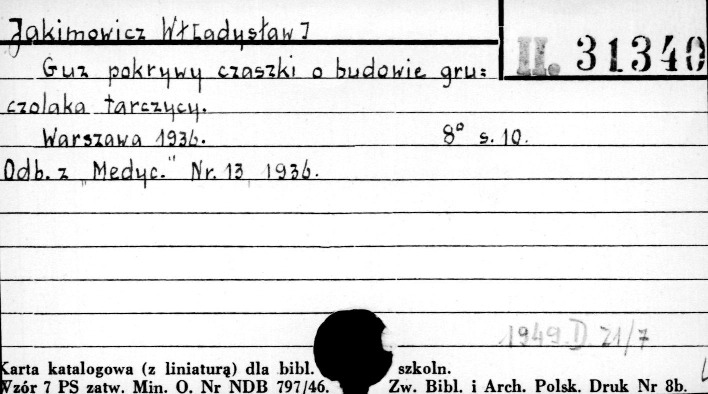 Jakimowicz Wł[adysław]
II. 31340
Guz pokrywy czaszki o budowie gru=
czolaka tarczycy.
Warszawa 1936. 8° s. 10.
Odb. z "Medyc." Nr. 13, 1936.
1949. D. 21/7
Karta katalogowa (z liniaturą) dla bibl. szkoln.
Wzór 7 PS zatw. Min. O. Nr NDB 797/46. Zw. Bibl. i Arch. Polsk. Druk Nr 8b.